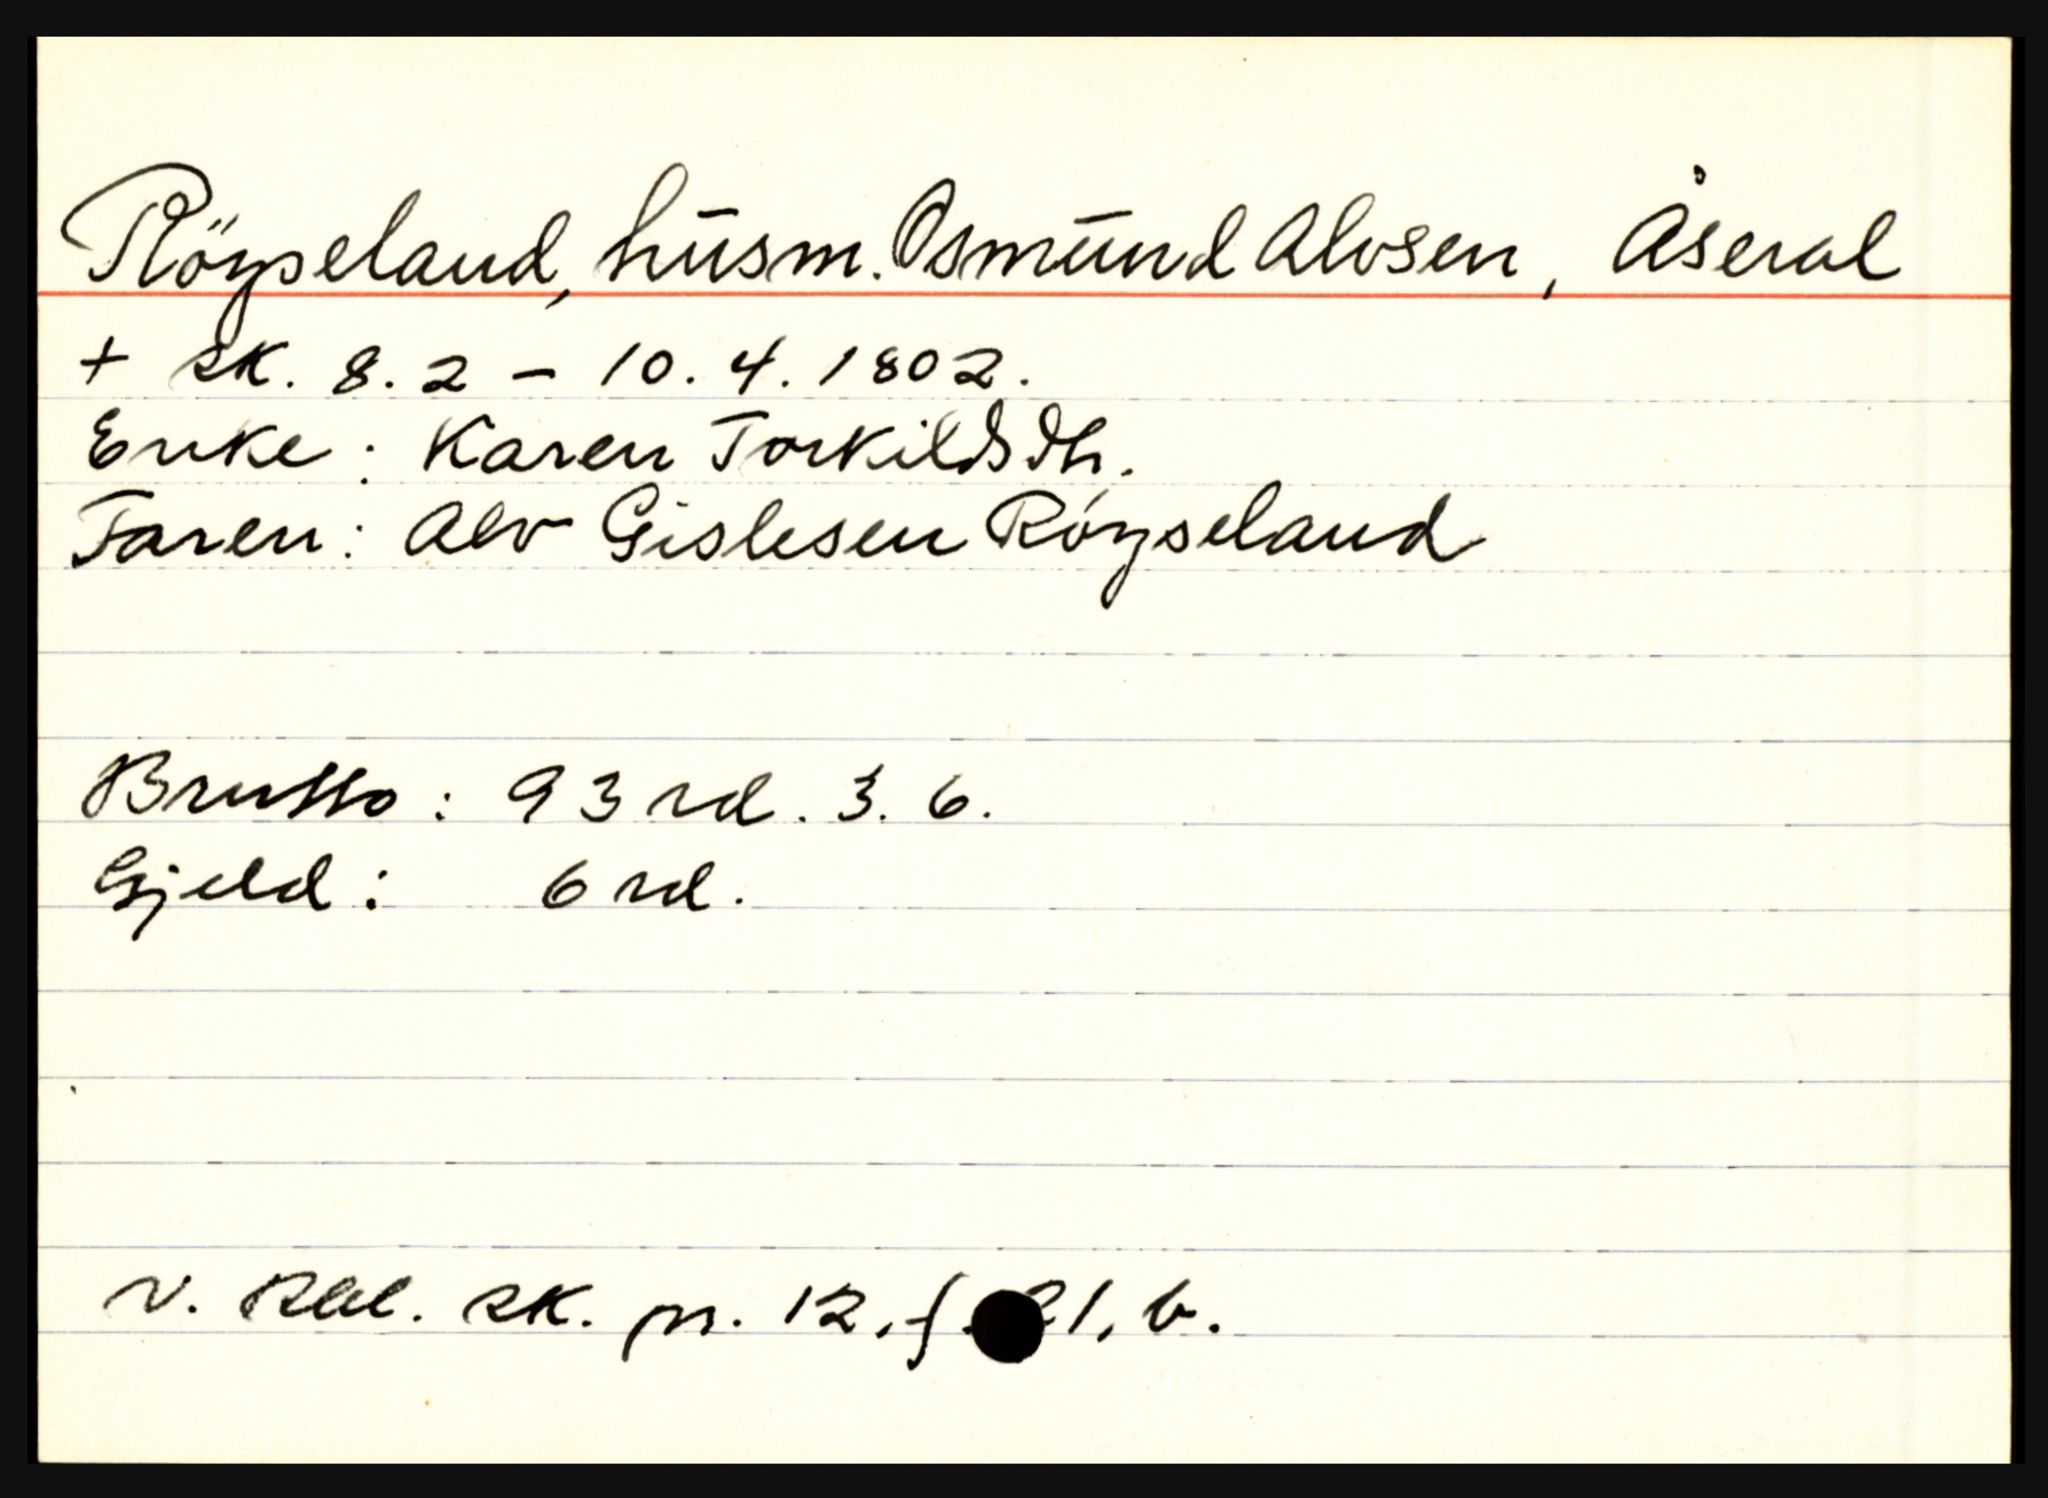 Röyseland, husm. Osmund Alvsen, Åseral
+ sk. 8.2 - 10.4.1802.
Enke: Karen Torkildsdtr.
Faren: Alv Gislesen Röyseland
Brutto: 93 rd. 3. 6.
Gjeld: 6 rd.
V. Rbl. sk. pr. 12, f. 21, b.